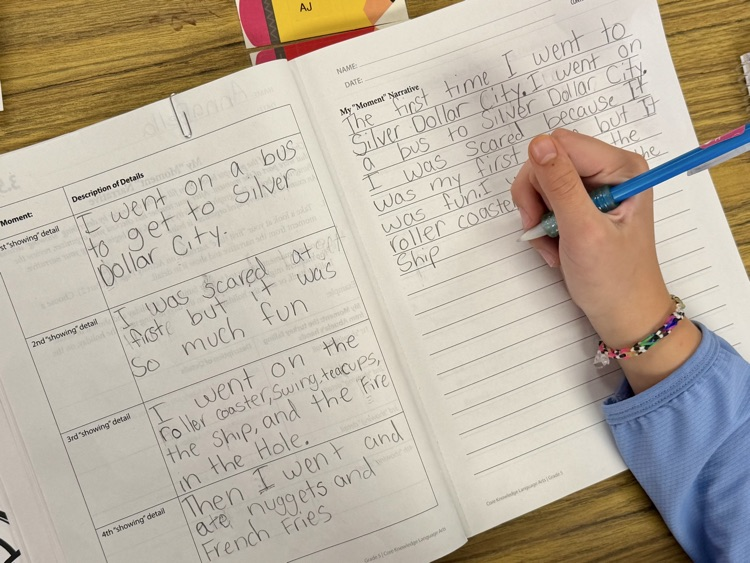 AJ
Moment:
Description of Details
1st "showing" detail
I went on a bus
to get to Silver
Dollar City.
2nd "showing" detail
I was scared at
first but it was
so much fun
3rd "showing" detail
I went on the
roller coaster, swing, teacups,
the ship, and the Fire
in the Hole.
4th "showing" detail
Then I went and
ate nuggets and
French Fries
Core Knowledge Language Arts
NAME:
DATE:
My "Moment" Narrative
The first time I went to
Silver Dollar City. I went on
a bus to Silver Dollar City.
I was scared because it
was my first but It
was fun. I the
roller coaster the
Ship
Core Knowledge Language Arts | Grade 5